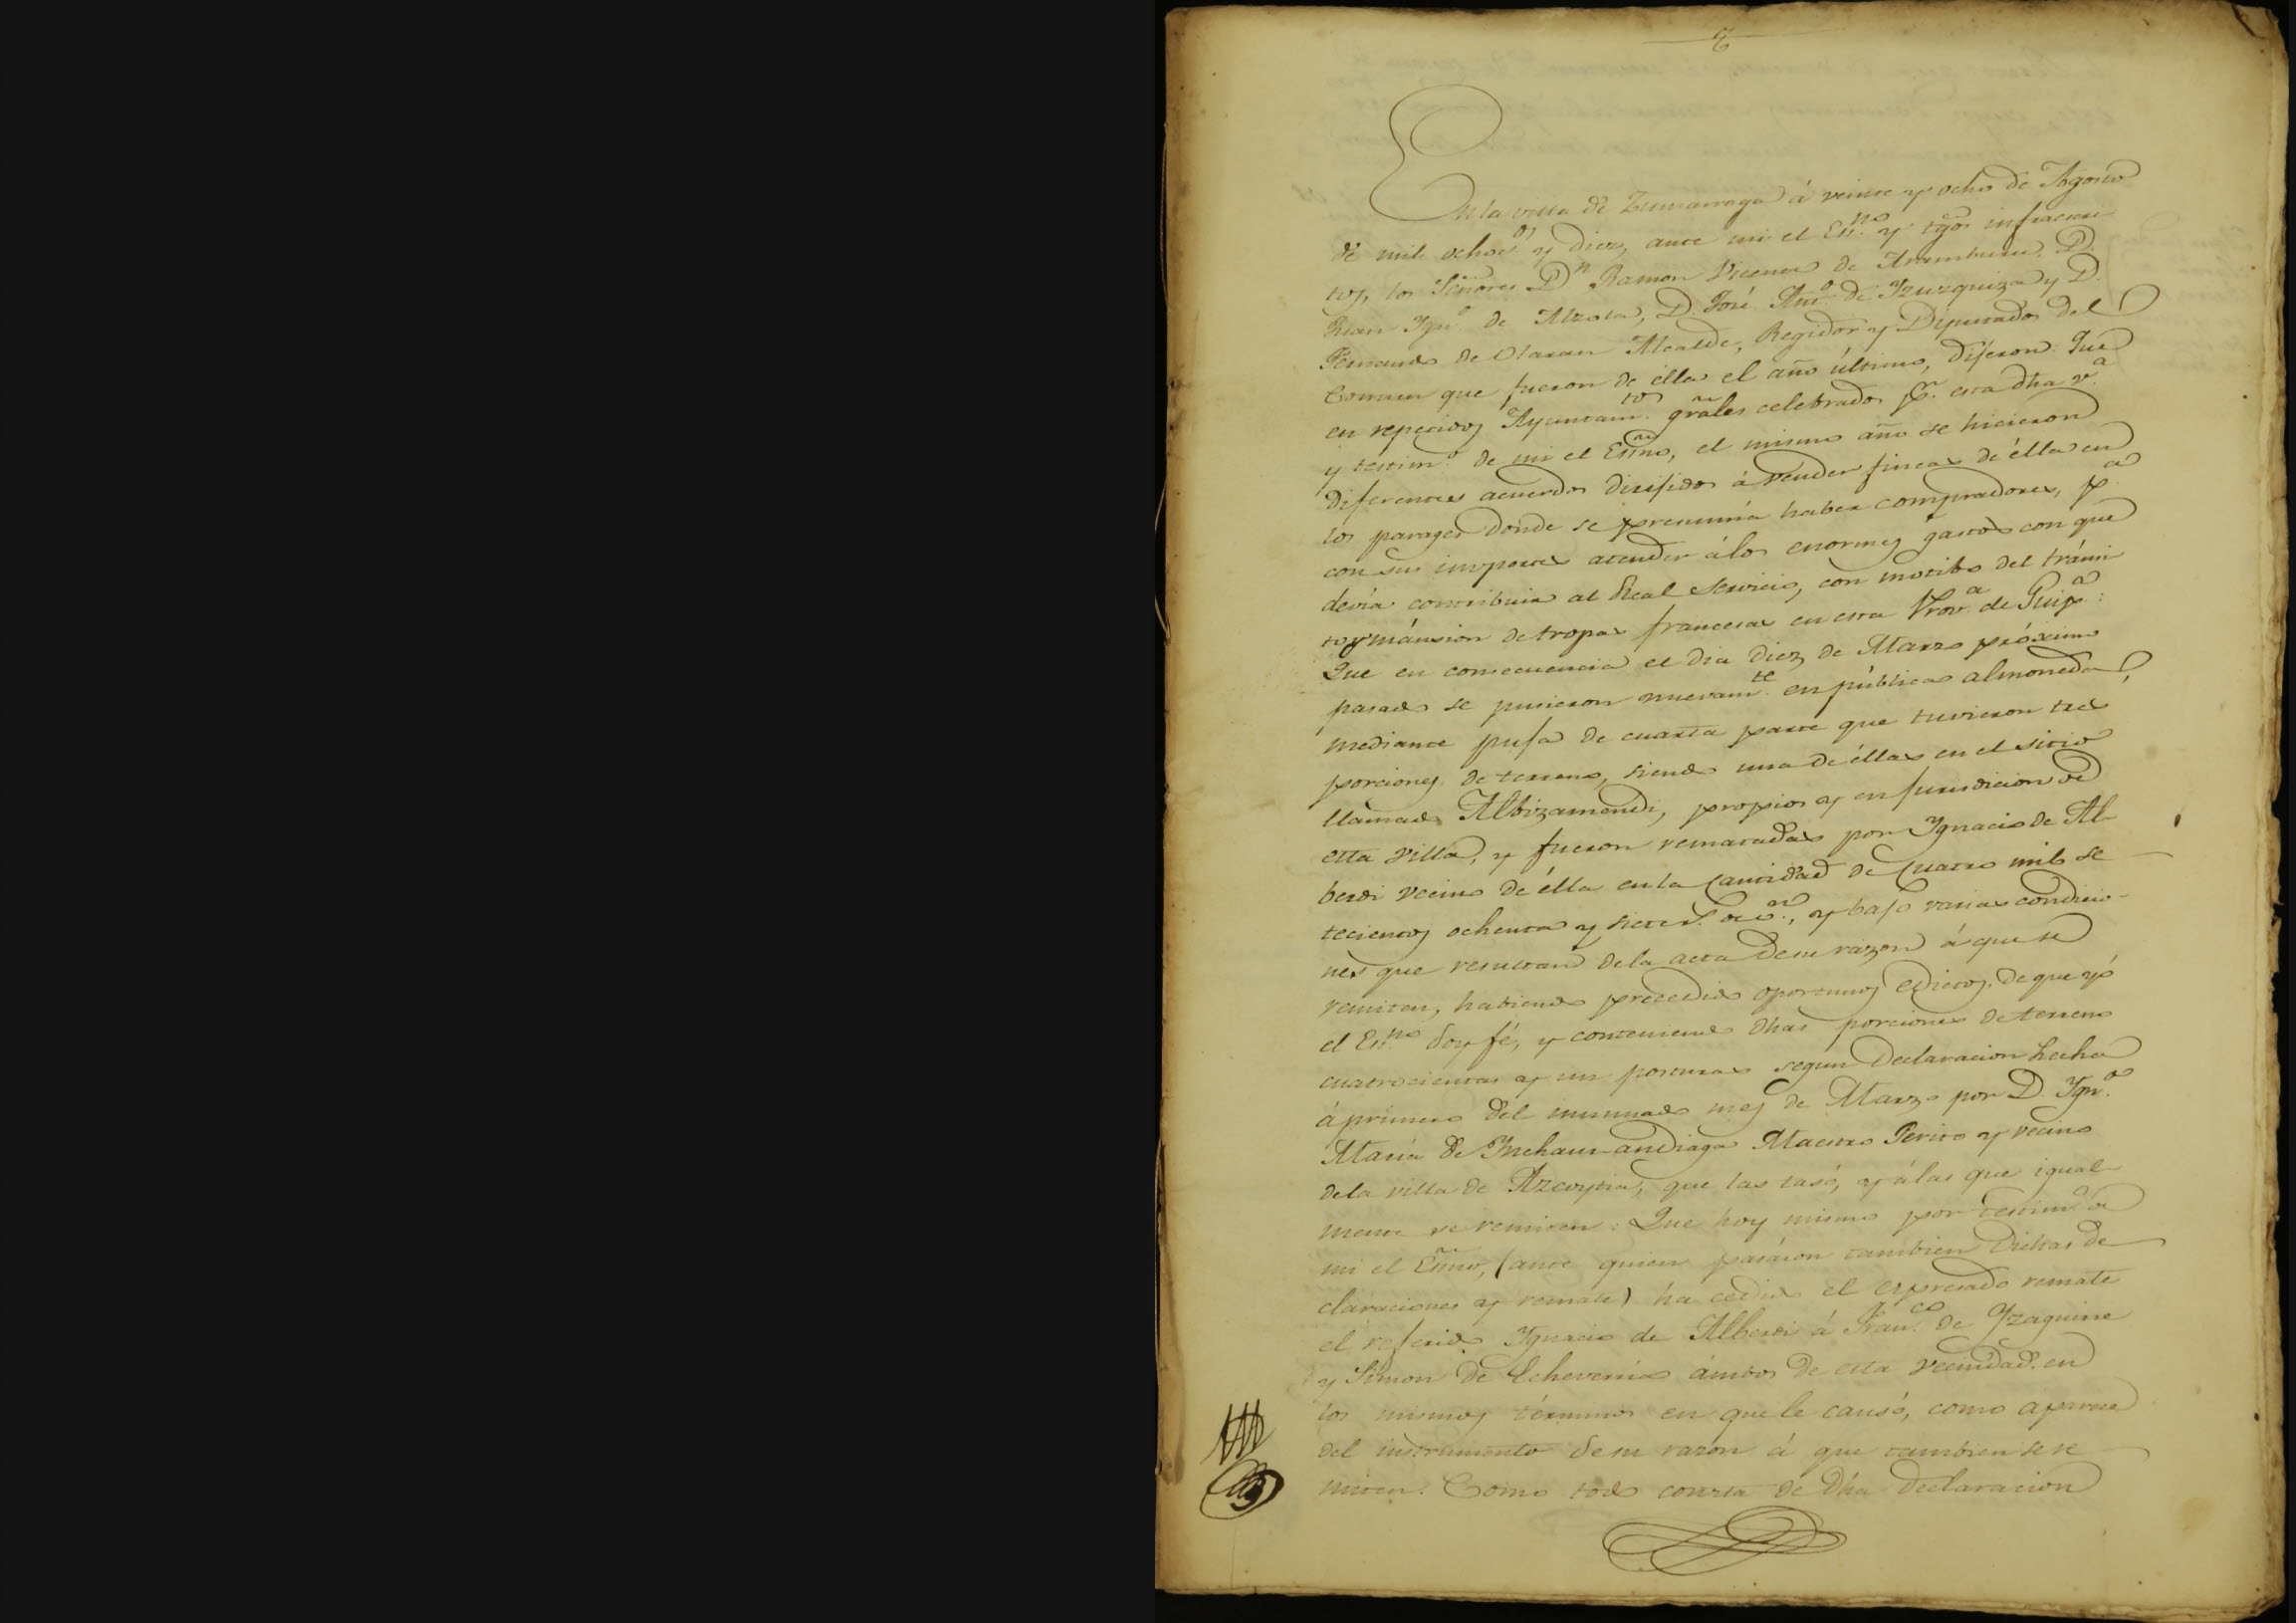 En la villa de Zumarraga á veinte y ocho de Agosto
de mil ochocos y diez, ante mi el Esno y tgos infrascri
tos, los Señores Dn Ramon Vicente de Aramburu, D.
Juan Igno de Alzola, D. José Anto de Yzuzquiza y D.
Fernando de Olaran Alcalde, Regidor y Diputados del
Comun que fueron de ella el año último, dijeron: Que
en repetidos Ayuntamtos grãles celebrados pr. esta dha va
y testimo de mi el Esño, el mismo año se hicieron
diferentes acuerdos dirijidos á vender fincas de élla en
los parages donde se presumia haber compradores, pa
con sus importes atender á los enormes gastos con que
devia contribuir al Real servicio, con motibo del tránsi
to y mánsion de tropas francesas en esta Prova de Guipa:
Que en consecuencia el dia diez de Marzo próximo
pasado se pusieron nuevamte en pública almoneda,
mediante puja de cuarta parte que tuvieron tres
porciones de terreno, siendo una de éllas en el sitio
llamado Albizamendi, propios y en jurisdicion de
esta villa, y fueron rematadas por Ygnacio de Al-
berdi vecino de élla en la cantidad de cuatro mil se
tecientos ochenta y siete rs. de vn., y bajo varias condicio-
nes que resultan de la acta de su razon á que se
remiten, habiendo precedido oportunos edictos, de que yó
el Esno doy fé, y conteniendo dhas porciones de terreno
cuatrocientas y un posturas segun declaracion hecha
á primero del inmuado mes de Marzo por D. Ygno
Maria de Ynchaurandiaga Maestro Perito y vecino
de la villa de Azcoytia, que las tasó, y á las que igual-
mente se remiten: Que hoy mismo por testimo de
mi el Esño, (ante quien pasáron tambien dichas de
claraciones y remate) ha cedido el expresado remate
el referido Ygnacio de Alberdi á Franco de Yzaguirre
y Simon de Echeverria ámbos de esta vecindad. en
los mismos términos en que le causó, como aparece
del instrumento de su razón á que tambien se re
miten. Como todo consta de dha declaracion